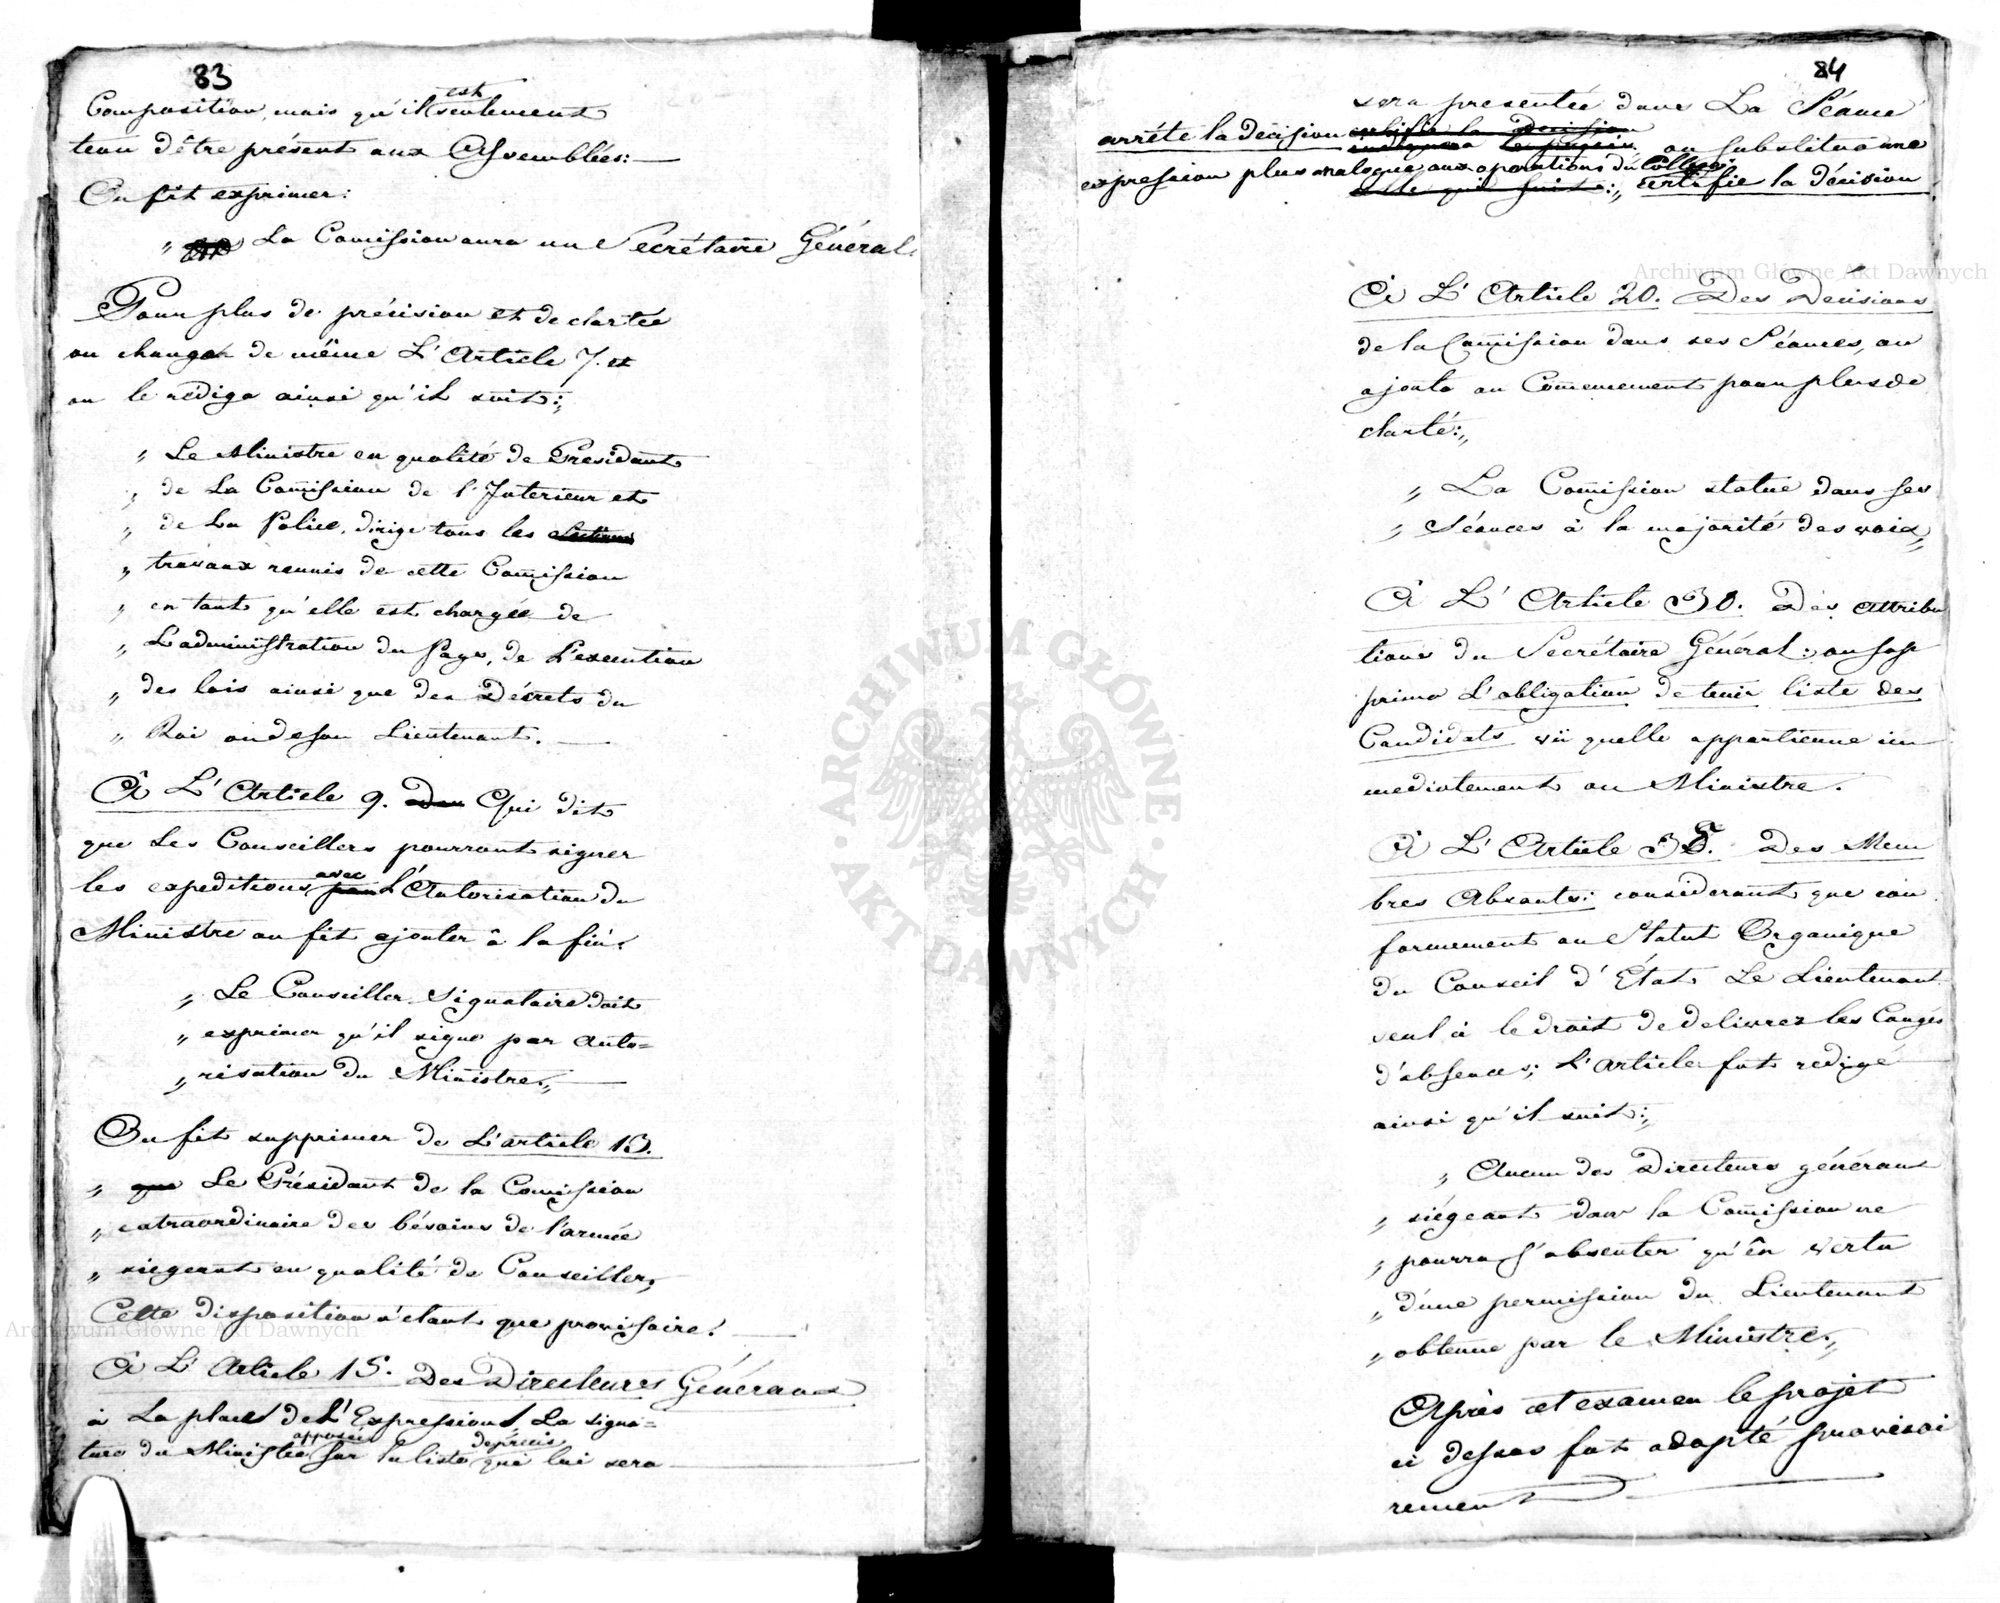 83
Composition, mais qu'il est seulement
tenu d'être présent aux Assemblées:
On fit exprimer:
„ La Comission aura un Secrétaire Général.
Pour plus de précision et de clartée
on changea de même L'Article 7. et
on le rédigea ainsi qu'il suit:„
„ Le Ministre en qualité de President
„ de La Comission de l'Interieur et
„ de La Police, dirige tous les
„ travaux reunis de cette Comission
„ en tant qu'elle est chargée de
„ L'administration du Pays, de L'execution
„ des lois ainsi que des Décrets du
„ Roi ou de son Lieutenant.
À L'Article 9. Qui dit
que Les Conseillers pourront signer
les expeditions avec L'Autorisation du
Ministre on fit ajouter à la fin:
„ Le Conseiller Signataire doit
„ exprimer qu'il signe par auto=
„ risation du Ministre.„
On fit supprimer de L'article 13.
„ que Le Président de la Comission
„ extraordinaire des bésoins de l'armée
„ siegerat en qualité de Conseiller,
Cette disposition n'etant que provisoire.
À L'Article 15. Des Directeures Généraux
à La place de L'Expression La signa=
ture du Ministre apposée sur la liste qui lui sera
84
sera presentée dans La Séance
arrête la decision on substitua une
expression plus analogue aux operations du College: certifie la décision
À L'Article 20. Des Decisions
de la Comission dans ses Séances, on
ajouta au Comencement pour plus de
clarté:„
„ La Comission statue dans ses
„ Séances à la majorité des voix„
À L'Article 30. Des attribu
tions du Secrétaire Général: on sup
prima L'obligation de tenir liste des
Candidats vû quelle appartienne im
mediatement au Ministre.
À L'Article 35. Des Mem
bres Absents: considerant que con
formement au Statut Organique
du Conseil d'État Le Lieutenant
seul à le droit de delivrer les Congés
d'absences; L'article fut redigé
ainsi qu'il suit:„
„ Aucun des Directeurs généraux
„ siégeant dans la Comission ne
„ pourra s'absenter qu'ên vertu
„ d'une permission du Lieutenant
„ obtenue par le Ministre.„
Après cet examen le projet
ci dessus fut adopté provisoi
rement
Archiwum Główne Akt Dawnych
Archiwum Główne Akt Dawnych
ARCHIWUM GŁÓWNE
AKT DAWNYCH